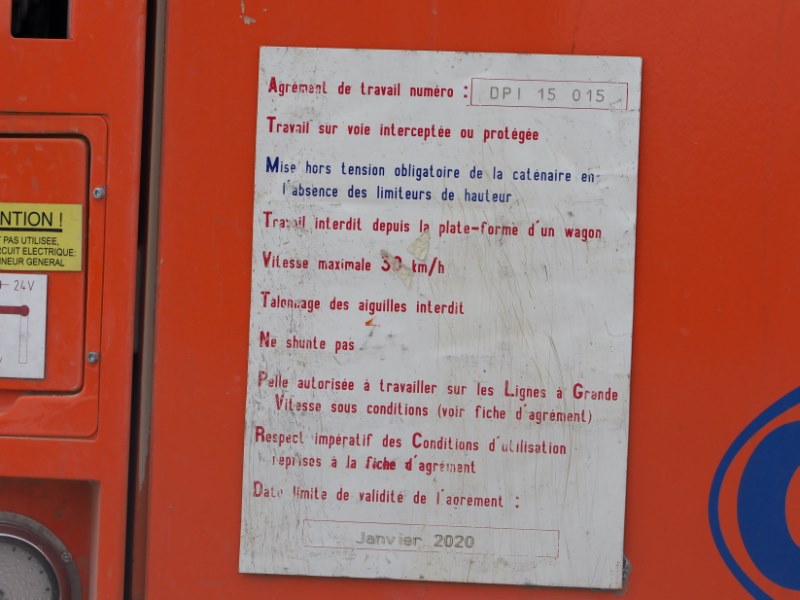 Agrément de travail numéro : DPI 15 015
Travail sur voie interceptée ou protégée
Mise hors tension obligatoire de la caténaire en
l'absence des limiteurs de hauteur
Travail interdit depuis la plate-forme d'un wagon
Vitesse maximale 30 km/h
Talonnage des aiguilles interdit
Ne shunte pas
Pelle autorisée à travailler sur les Lignes à Grande
Vitesse sous conditions (voir fiche d'agrément)
Respect impératif des Conditions d'utilisation
reprises à la fiche d'agrément
Date limite de validité de l'agrement :
Janvier 2020
NTION !
PAS UTILISEE,
RCUIT ELECTRIQUE:
NNEUR GENERAL
24V